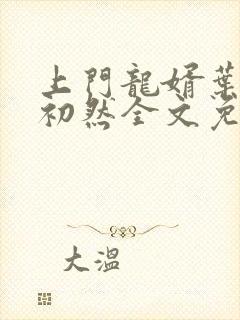 上門龍婿葉
初然全文免
大溫